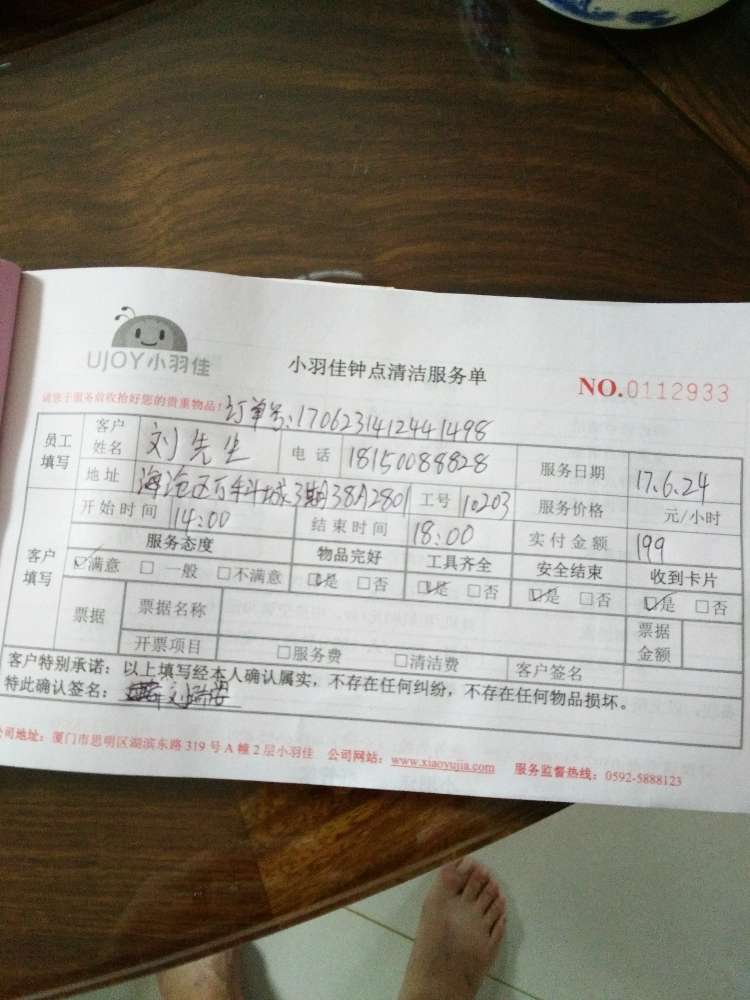 UJOY小羽佳
小羽佳钟点清洁服务单
NO.0112933
请您于服务前收拾好您的贵重物品! 订单号:17062314124441498
员工填写 客户姓名 刘先生 电话 18150088828 服务日期 17.6.24
地址 海沧区万科城3期38A2801 工号 10203 服务价格 元/小时
客户填写 开始时间 14:00 结束时间 18:00 实付金额 199
服务态度 物品完好 工具齐全 安全结束 收到卡片
☑满意 □一般 □不满意 ☑是 □否 ☑是 □否 ☑是 □否 ☑是 □否
票据 票据名称 票据金额
开票项目 □服务费 □清洁费 客户签名
客户特别承诺:以上填写经本人确认属实,不存在任何纠纷,不存在任何物品损坏。
特此确认签名:
公司地址:厦门市思明区湖滨东路319号A幢2层小羽佳 公司网站:www.xiaoyujia.com 服务监督热线:0592-5888123